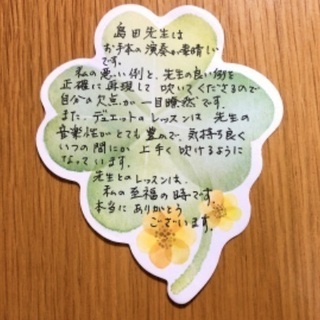 島田先生は
お手本の演奏が素晴しい
です。
私の悪い例と、先生の良い例を
正確に再現して吹いてくださるので
自分の欠点が一目瞭然です。
また、デュエットのレッスンは先生の
音楽性がとても豊かで、気持ち良く
いつの間にか上手く吹けるように
なっています。
先生とのレッスンは、
私の至福の時です。
本当にありがとう
ございます。